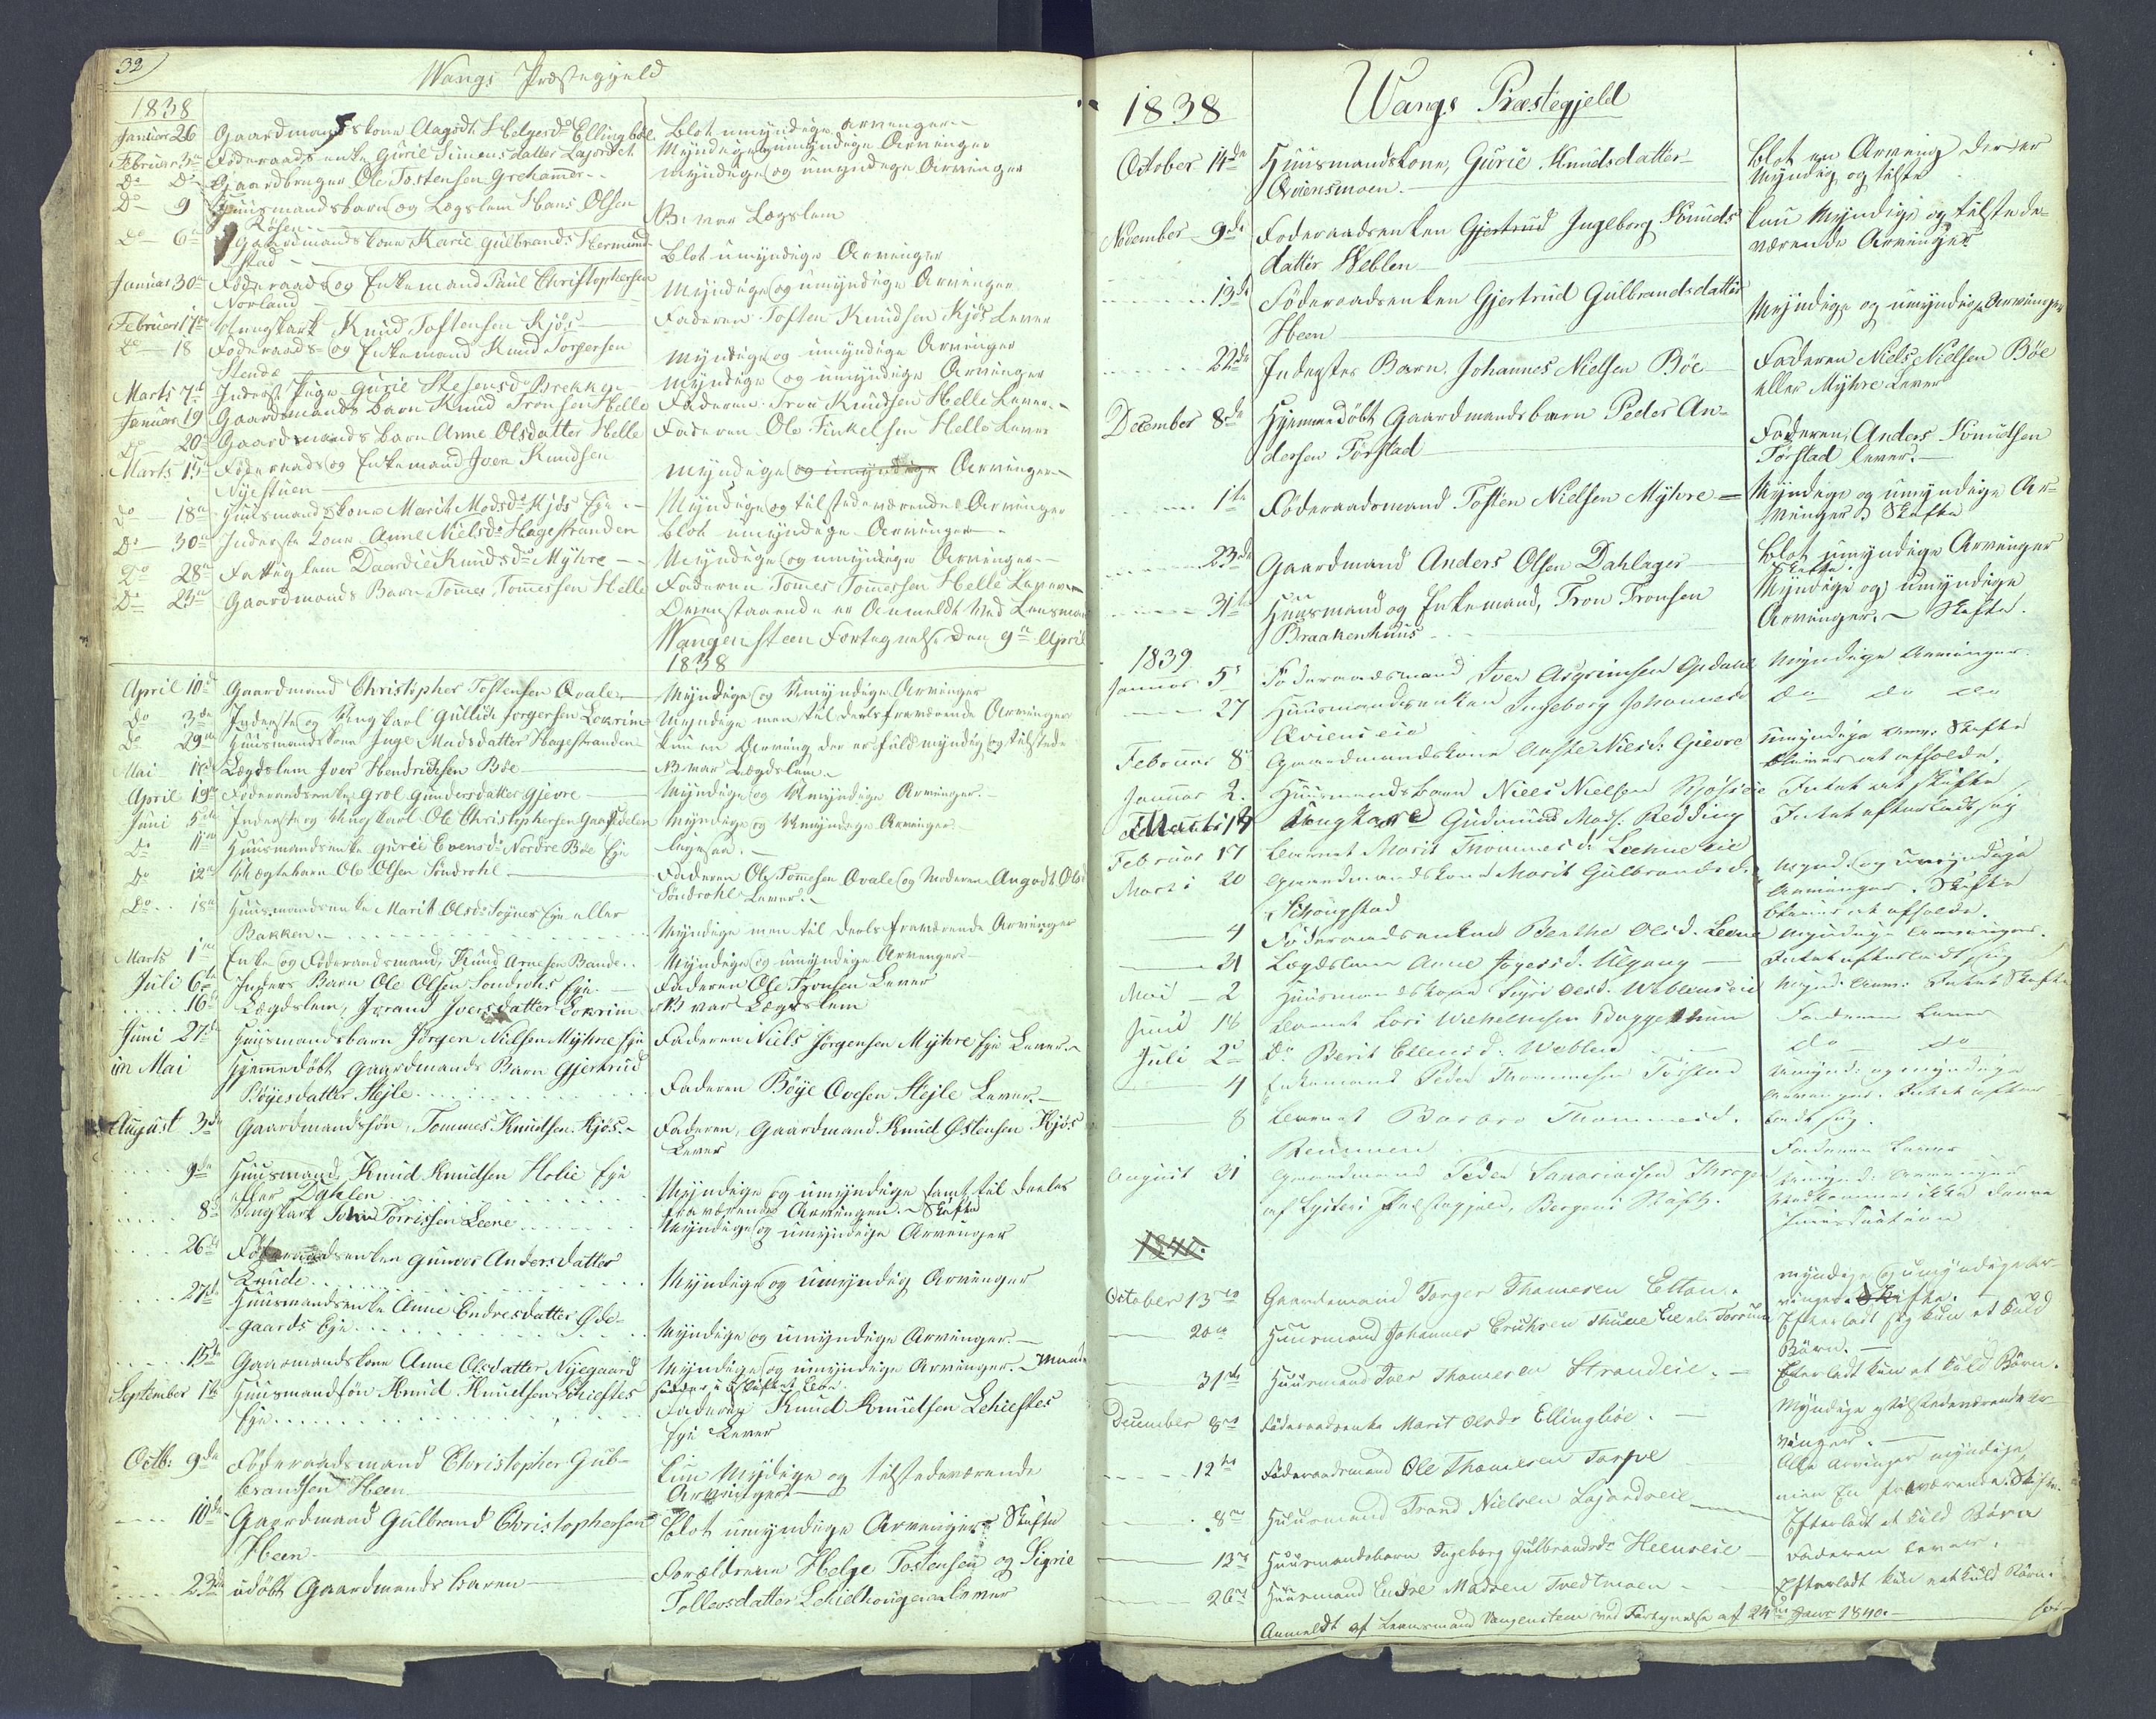 32
Wangs Præstegjeld
1838
Januar 26 Gaardmandskone Aagodt Helgesdr Ellingbøe. Blot umyndige Arvinger
Februar 3de Føderaadsenke Gurie Simensdatter Lajordet. Myndige og umyndige Arvinger
Do Do Gaardbruger Ole Tostensen Grehamer Myndige og umyndige Arvinger
Do 9 Huusmandsbarn og Lægslem Hans Olsen
Røsen NB: var Lægslem
Do 6te Gaardmandskone Karie Gulbrandsdr Hermund-
stad Blot umyndige Arvinger
Januar 30te Føderaads og Enkemand Paul Christophersen
Norland Myndige og umyndige Arvinger
Februar 17de Ungkarl Knud Tostensen Kjøs Faderen Tosten Knudsen Kjøs Lever
Do 18 Føderaads og Enkemand Knud Jorgensen
Stende Myndige og umyndige Arvinger
Marts 7de Inderst Pige Gurie Stefensdr Brekken Myndige og umyndige Arvinger
Januar 19 Gaardmands barn Knud Tronsen Helle Faderen Tron Knudsen Helle Lever
Do 20 Gaardmands barn Anne Olsdatter Helle Faderen Ole Finkelsen Helle Lever
Marts 15de Føderaads og Enkemand Iver Knudsen
Nyestuen Myndige og umyndige Arvinger
Do 18de Huusmandskone Marit Madsdr Kjøs Eje Myndige og tilstedeværende Arvinger
Do 30te Inderste Kone Anne Nielsdr Hagestranden Blot umyndige Arvinger
Do 28de Fattiglem Daardie Knudsdr Myhre Myndige og umyndige Arvinger
Do 23de Gaardmands Barn Tomes Tomessen Helle Faderen Tomes Tomessen Helle Lever
Ovenstaaende er Anmeldt ved Lensmand
Wangensteen Fortegnelse den 9de April
1838
April 10de Gaardmand Christopher Tostensen Qvale Myndige og Umyndige Arvinger
Do 3de Inderste og Ungkarl Gullich Jorgersen Lokrim Myndige men til deels fraværende Arvinger
Do 29de Huusmandskone Inge Madsdatter Hagestranden Kun en Arving der er fuldmyndig og tilstede
Mai Lægdslem Iver Hendrichsen Bøe NB var Lægdslem
April 19de Føderaadsenke Grol Gundersdatter Gjevre Myndige og Umyndige Arvinger
Juni 5te Inderste og Ungkarl Ole Christophersen Myndige og Umyndige Arvinger
Do 11te Huusmandsenke Gurie Evensdr Nordre Bøe Eje Ligesaa
Do 12te Uægtebarn Ole Olsen Søndrohl Faderen Ole Tomesen Qvale og Moderen Angodt Olsdr
Søndrohl Lever
Do 18de Huusmandsenke Marit Olsdr Soynes Eje eller
Bakken Myndige men til deels fraværende Arvinger
Marts 1te Enke og Føderaadsmand Knud Arnesen Bande Myndige og umyndige Arvinger
Juli 6te Inders Barn Ole Olsen Søndrohls Eje Faderen Ole Tronsen Lever
16de Lægdslem, Jorand Iversdatter Lokrim NB var Lægdslem
Juni 27de Huusmandsbarn Jørgen Nielsen Myhre Eje Faderen Niels Jørgensen Myhre Eje Lever
in Mai Hjemmedøbt Gaardmands Barn Gjertrud
Bøyesdatter Hejle Faderen Bøye Ovesen Hejle Lever
August 3de Gaardmandssøn, Tommes Knudsen Kjøs Faderen, Gaardmand Knud Østensen Kjøs
Lever
9de Huusmand Knud Knudsen Holie Eje
eller Dahlen Myndige og umyndige samt til deeles
fraværende Arvinger Skifte
8de Ungkarl John Torrissen Leene Myndige og umyndige Arvinger
26de Føderaadsenken Gunvor Andersdatter
Qvude Myndige og umyndig Arvinger
27de Huusmandsenke Anne Endresdatter Øde-
gaards Eje Myndige og umyndige Arvinger
15de Gaarmandskone Anne Olsdatter Nyegaard Myndige og umyndige Arvinger
September 1te Huusmandssøn Knud Knudsen Lehiestes
Eje Faderen Knud Knudsen Lehiestes
Eje Lever
Octb: 9de Føderaadsmand Christopher Gul-
brandsen Heen Kun Myndige og tilstedeværende
Arvinger
10de Gaardmand Gulbrand Christophersen
Heen Blot umyndige Arvinger Skifte
23de udøbt Gaardmands barn Forældrene Helge Tostensen og Sigrie
Tollevsdatter Lehielhougen Lever
1838 Wangs Præstegjeld
October 14de Huusmandskone, Gurie Knudsdatter
Qviensmoen Blot en Arving der er
Myndig og tilste
November 9de Føderaadsenken Gjertrud Ingeborg Knuds
datter Weblen kun Myndige og tilstede-
værende Arvinger
13de Føderaadsenken Gjertrud Gulbrandsdatter
Heen Myndige og umyndige Arvinger
22de Inderstes Barn Johannes Nielsen Bøe Faderen Niels Nielsen Bøe
eller Myhre Lever
December 8de Hjemmedøbt Gaardmandsbarn Peder An-
dersen Tørstad Faderen, Anders Knudsen
Tørstad lever
1te Føderaadsmand Tosten Nielsen Myhre Myndige og umyndige Ar-
vinger Skifte
23de Gaardmand Anders Olsen Dahlager Blot umyndige Arvinger
Skifte
31te Huusmand og Enkemand, Tron Tronsen
Braakenhuus Myndige og umyndige
Arvinger Skifte
1839
Januar 5 Føderaadsmand Iver Asgrimsen Opdahl Myndige Arvinger
27 Huusmandsenken Ingeborg Johannesdr
Qvienseie do do do
Februar 8 Gaardmandskone Aaste Nielsd: Gievre Umyndige Arv: Skifte
bliver at afholde.
Januar 2. Huusmandsbarn Niels Nielsen Kjøseie Intet at skifte
Marts 14 Ungkarl Gudmund Mads. Redding Intet efterladt sig
Februar 17 Barnet Marit Thommesd. Leehne eie
Marts 20 Gaardmandskone Marit Gulbrandsd.
Schougstad Mynd. og umyndige
Arvinger. Skifte
bliver at afholde.
4 Føderaadsenken Berthe Olsd. Leene Myndige Arvinger.
31 Lægdslem Anne Intet efterladt sig
Mai 2 Huusmandskone Sigri Olsd. Weblenseie Mynd: Arv: Intet Skifte
Juni 18 Barnet Lars Wilhelmsen Baggethun Faderen Lever
Juli 2 Do Berit Ellensd: Weblen do do
4 Enkemand Peder Thommesen Tørstad Umynd: og myndige
Arvinger. Intet efter-
ladt sig.
8 Barnet Barbro Thommesd.
Faderen Lever
August 31 Gaardmand Peder
af Lysters Præstegjeld, Bergens Stift. vedkommer ikke denne
Jurisdiction
1840.
October 13de Gaardmand Torger Thomesen Elton. Myndige og umyndige Ar-
vinger. Skifte.
20de Huusmand Johannes Erichsen Thune Eie Efterladt sig kun et Kuld
Børn.
31te Huusmand Iver Thomesen Strandeie. Efterladt kun et Kuld Børn.
December 8de Føderaadsenke Marit Olsdr Ellingbøe. Myndige og tilstedeværende Ar-
vinger.
12te Føderaadsmand Ole Thomesen Alle Arvinger myndige
men En fraværende. Skifte.
8de Huusmand Trond Nielsen Lajordseie Efterladt et Kuld Børn
13de Huusmandsbarn Ingeborg Gulbrandsdr Heenseie Faderen lever.
26de Huusmand Endre Madsen Tvedtmoen Efterladt kun eet Kuld Børn.
Anmeldt af Leensmand Vangensteen ved Fortegnelse af 24de Janr 1840.